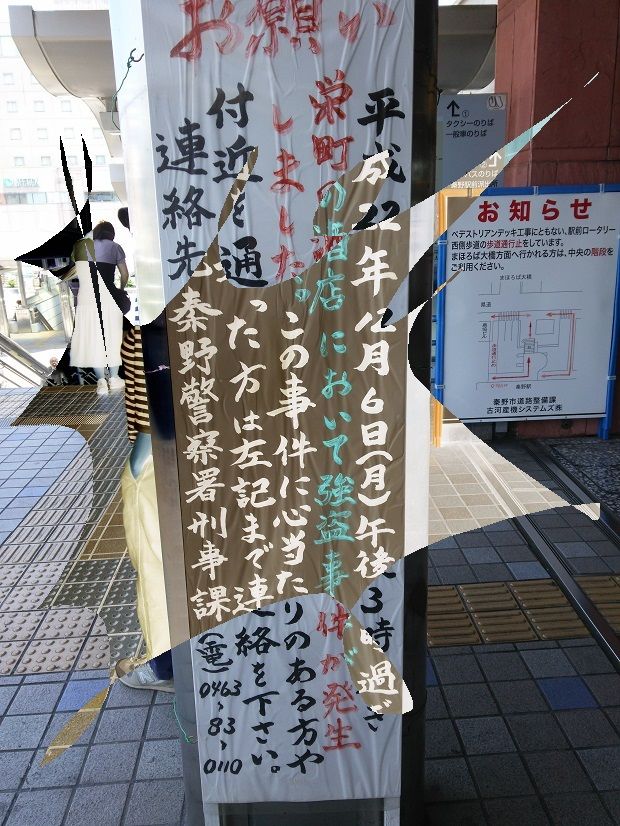 お願い
平成22年12月6日(月)午後3時過ぎ
栄町の酒店において強盗事件が発生
しました。この事件に心当たりのある方や
付近を通った方は左記まで連絡を下さい。
連絡先 秦野警察署刑事課(電)0463-83-0110
↑①
タクシーのりば
一般車のりば
②↑
バスのりば
秦野駅前派出所
お知らせ
ペデストリアンデッキ工事にともない、駅前ロータリー
西側歩道の歩道通行止をしています。
まほろば大橋方面へ行かれる方は、中央の階段を
ご利用ください。
まほろば大橋
県道
歩道通行止め
秦野駅
秦野市道路整備課
古河産機システムズ㈱